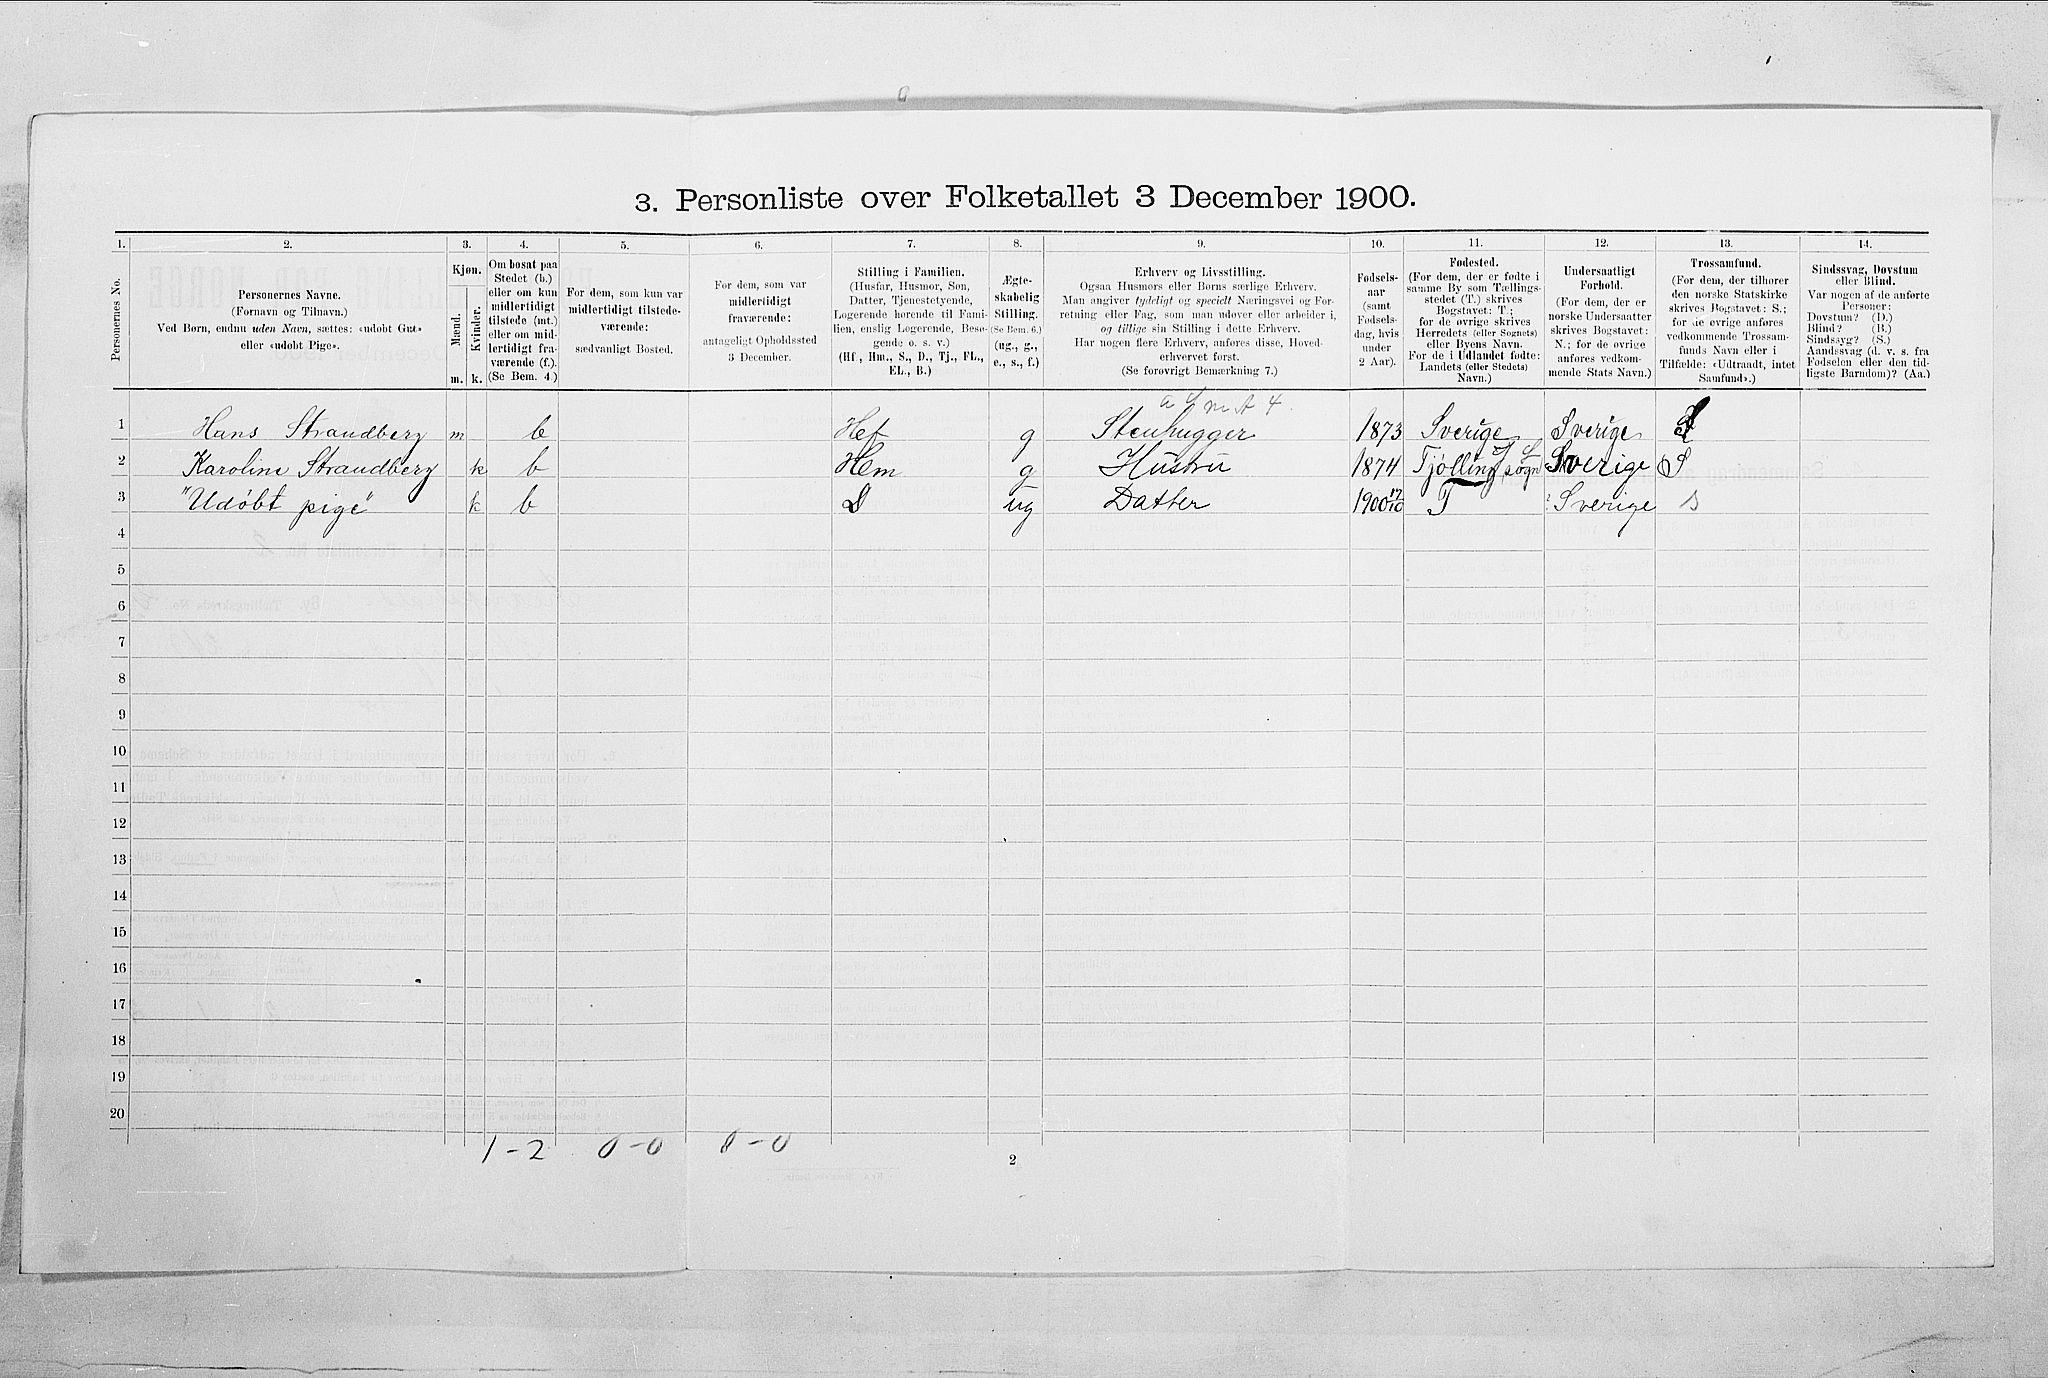 3. Personliste over Folketallet 3 December 1900.
1. 2. 3. 4. 5. 6. 7. 8. 9. 10. 11. 12. 13. 14.
Personernes No.
Personernes Navne.
(Fornavn og Tilnavn.)
Ved Børn, endnu uden Navn, sættes: «udøbt Gut»
eller «udøbt Pige».
Kjøn.
Mænd.
Kvinder.
m. k.
Om bosat paa
Stedet (b.)
eller om kun
midlertidigt
tilstede (mt.)
eller om mid-
lertidigt fra-
værende (f.).
(Se Bem. 4.)
For dem, som kun var
midlertidigt tilstede-
værende:
sædvanligt Bosted.
For dem, som var
midlertidigt
fraværende:
antageligt Opholdssted
3 December.
Stilling i Familien.
(Husfar, Husmor, Søn,
Datter, Tjenestetyende,
Logerende hørende til Fami-
lien, enslig Logerende, Besø-
gende o. s. v.)
(Hf., Hm., S., D., Tj., FL.,
EL., B.)
Ægte-
skabelig
Stilling.
(Se Bem. 6.)
(ug., g.,
e., s., f.)
Erhverv og Livsstilling.
Ogsaa Husmors eller Børns særlige Erhverv.
Man angiver tydeligt og specielt Næringsvei og For-
retning eller Fag, som man udøver eller arbeider i,
og tillige sin Stilling i dette Erhverv.
Har nogen flere Erhverv, anføres disse, Hoved-
erhvervet først.
(Se forøvrigt Bemærkning 7.)
Fødsels-
aar
(samt
Fødsels-
dag, hvis
under
2 Aar).
Fødested.
(For dem, der er fødte i
samme By som Tællings-
stedet (T.) skrives
Bogstavet: T.;
for de øvrige skrives
Herredets (eller Sognets)
eller Byens Navn.
For de i Udlandet fødte:
Landets (eller Stedets)
Navn.)
Undersaatligt
Forhold.
(For dem, der er
norske Undersaatter
skrives Bogstavet:
N.; for de øvrige
anføres vedkom-
mende Stats Navn.)
Trossamfund.
(For dem, der tilhører
den norske Statskirke
skrives Bogstavet: S.;
for de øvrige anføres
vedkommende Trossam-
funds Navn eller i
Tilfælde: «Udtraadt, intet
Samfund».)
Sindssvag, Døvstum
eller Blind.
Var nogen af de anførte
Personer:
Døvstum? (D.)
Blind? (B.)
Sindssyg? (S.)
Aandssvag (d. v. s. fra
Fødselen eller den tid-
ligste Barndom)? (Aa.)
1 Hans Strandberg m b Hef g Stenhugger 1873 Sverige Sverige S
2 Karoline Strandberg k b Hem g Hustru 1874 Tjølling sogn Sverige S
3 "Udöbt pige" k b D ug Datter 1900 17/10 T Sverige S
4
5
6
7
8
9
10
11
12
13
14
15
16
17
18
19
20
1-2 0-0 0-0
2